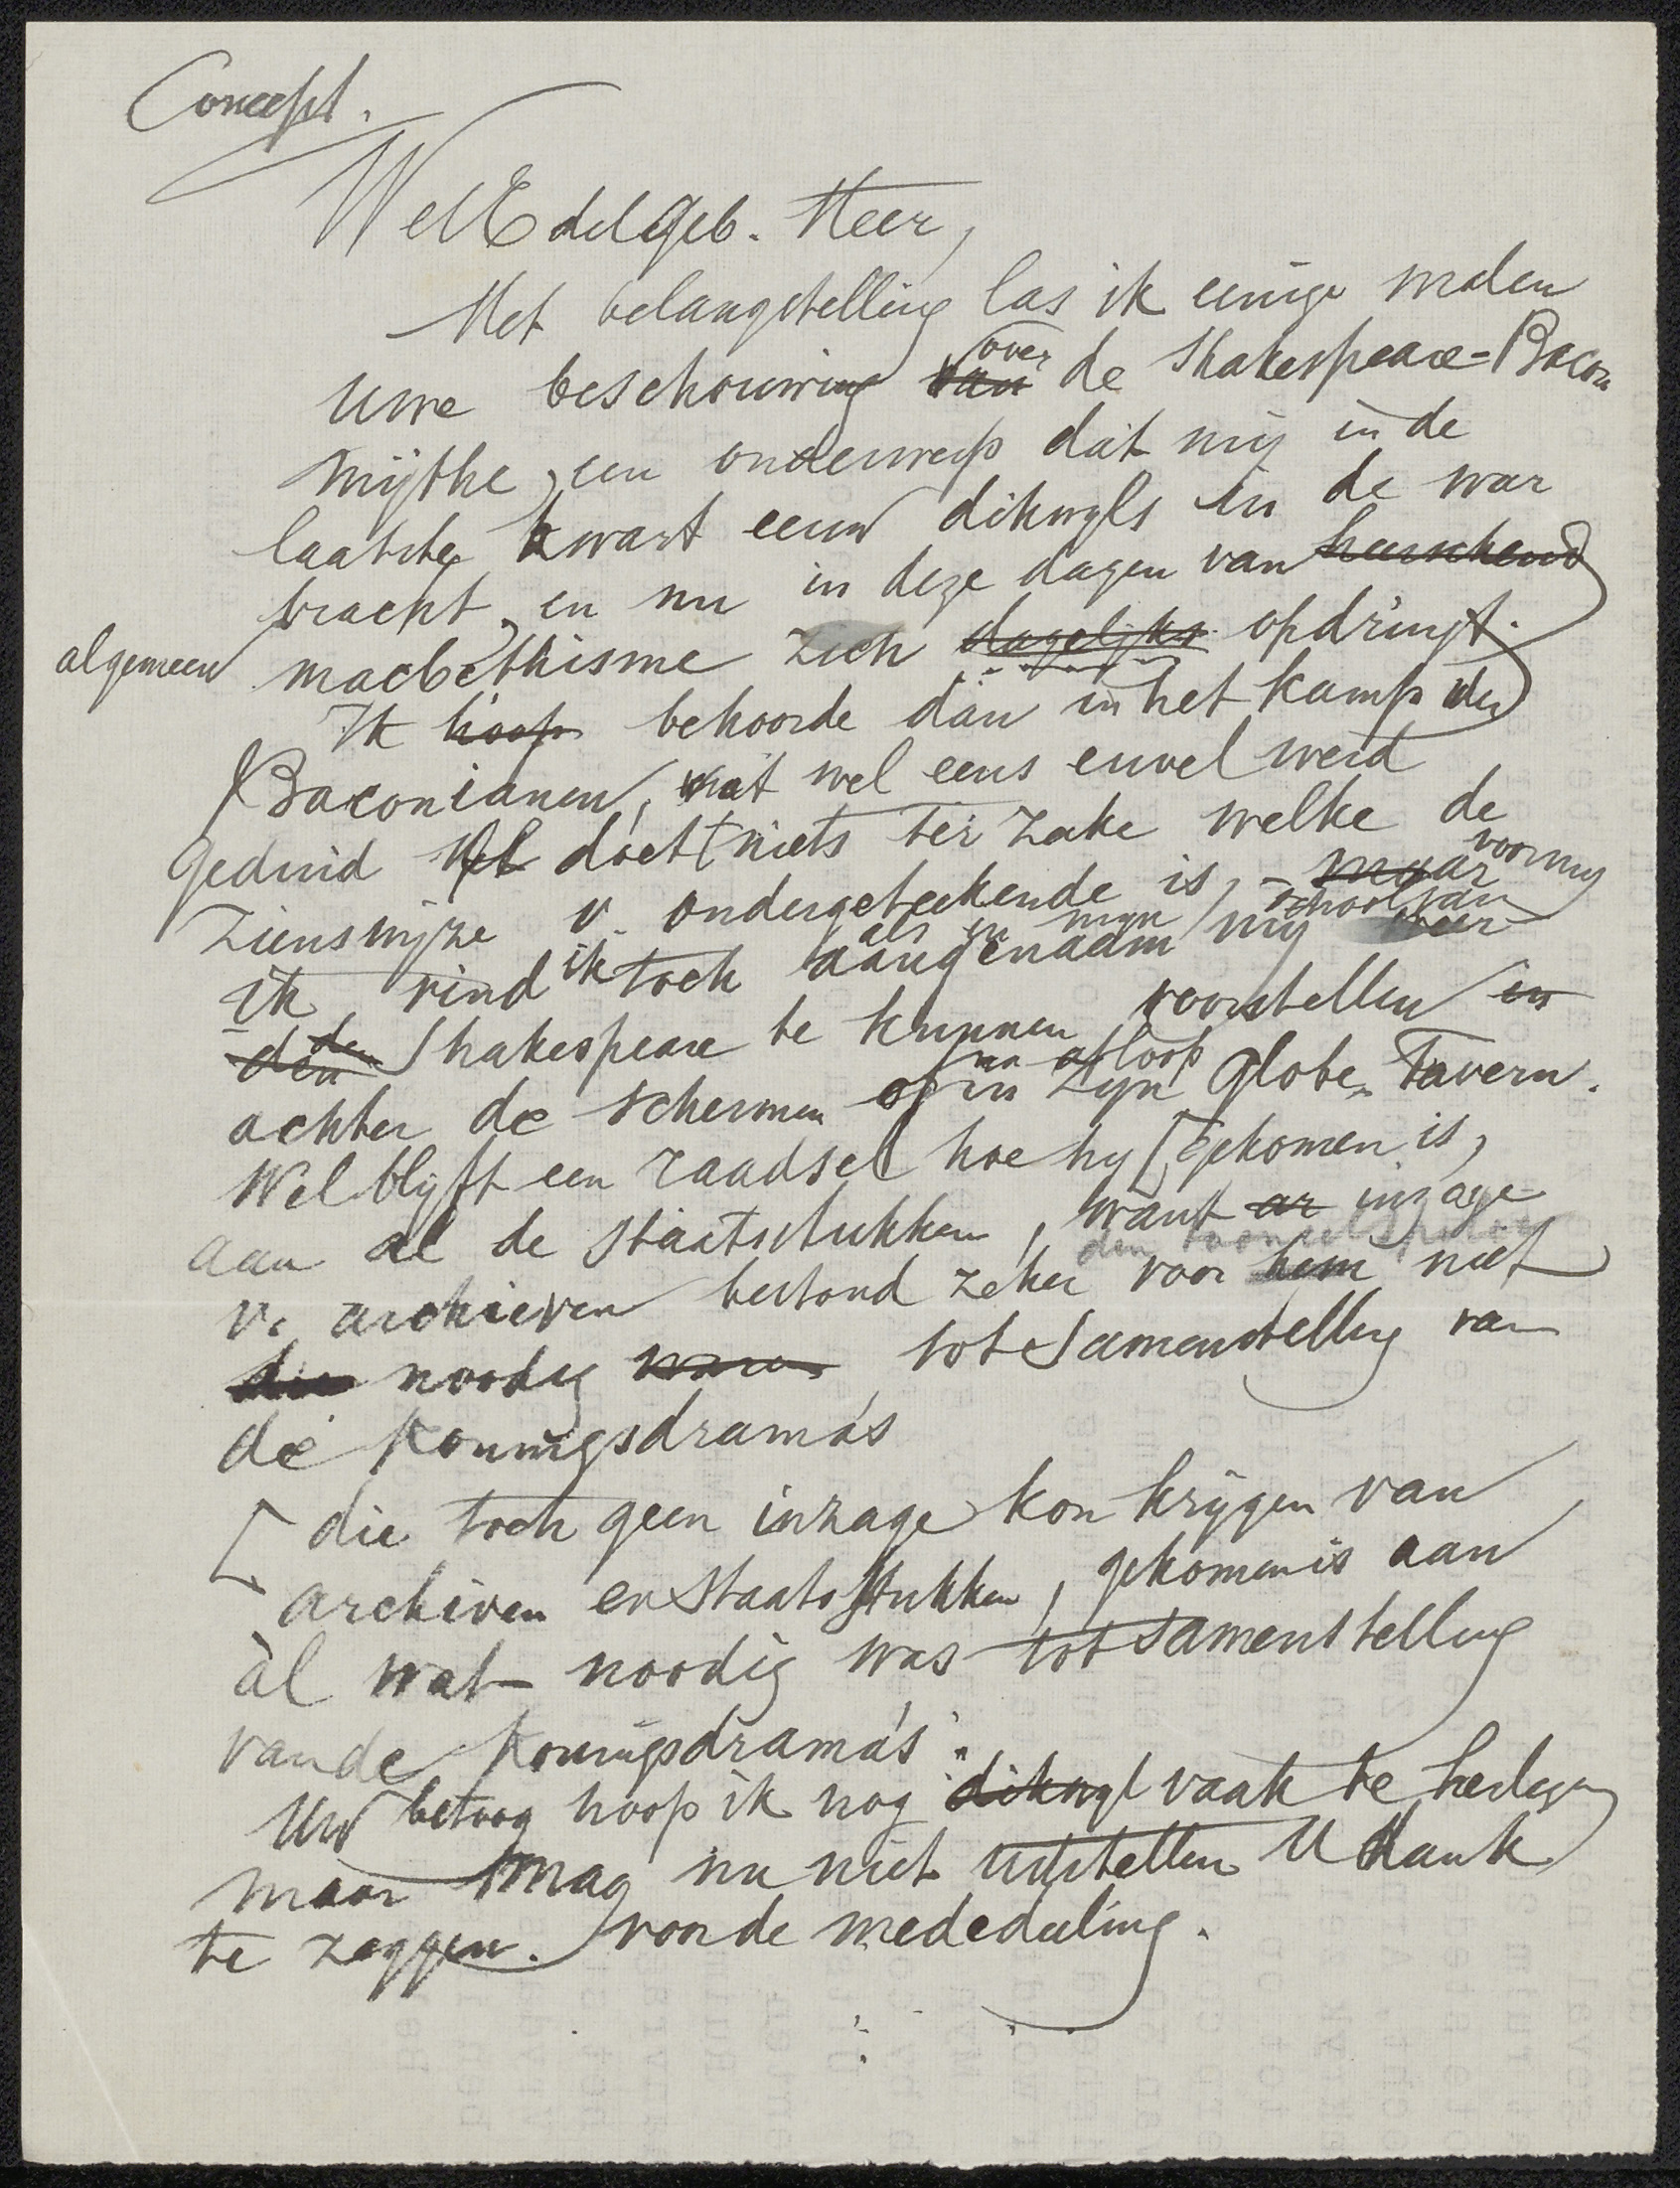 Concept.
WelEdelGeb. Heer,
Met belangstelling las ik eenige malen
over
uwe beschouwing van de Shakespeare-Bacon
mijthe, een onderwerp dat mij in de
laatste kwart eeuw dikwyls in de war
bracht, en nu in deze dagen van heerschend
algemeen macbethisme zich dagelijks opdringt.
Ik hoop behoorde dan in het kamp der
Baconianen, wat wel eens euvel werd
geduid Het doet niets ter zake welke de
zienswijze v. ondergeteekende is, - maar voor my
als en myn schoolvan
ik vind ik toch aangenaam my meer
den den Shakespeare te kunnen voorstellen in
na afloop
achter de schermen of in zyn Globe Tavern.
Wel blyft een raadsel hoe hy [gekomen is,
aan al de staatstukken, want ar inzage
den tooneelspeler
v. archieven bestond zeker voor hem niet
die noodig waren tot samenstelling van
de Koningsdrama's
[ die toch geen inzage kon krijgen van
archiven en Staatsstukken, gekomen is aan
àl wat noodig was tot samenstelling
van de Koningsdrama's.
Uw betoog hoop ik nog dikwyl vaak te herlezen
maar mag nu niet uitstellen U dank
te zeggen. voor de mededeeling.